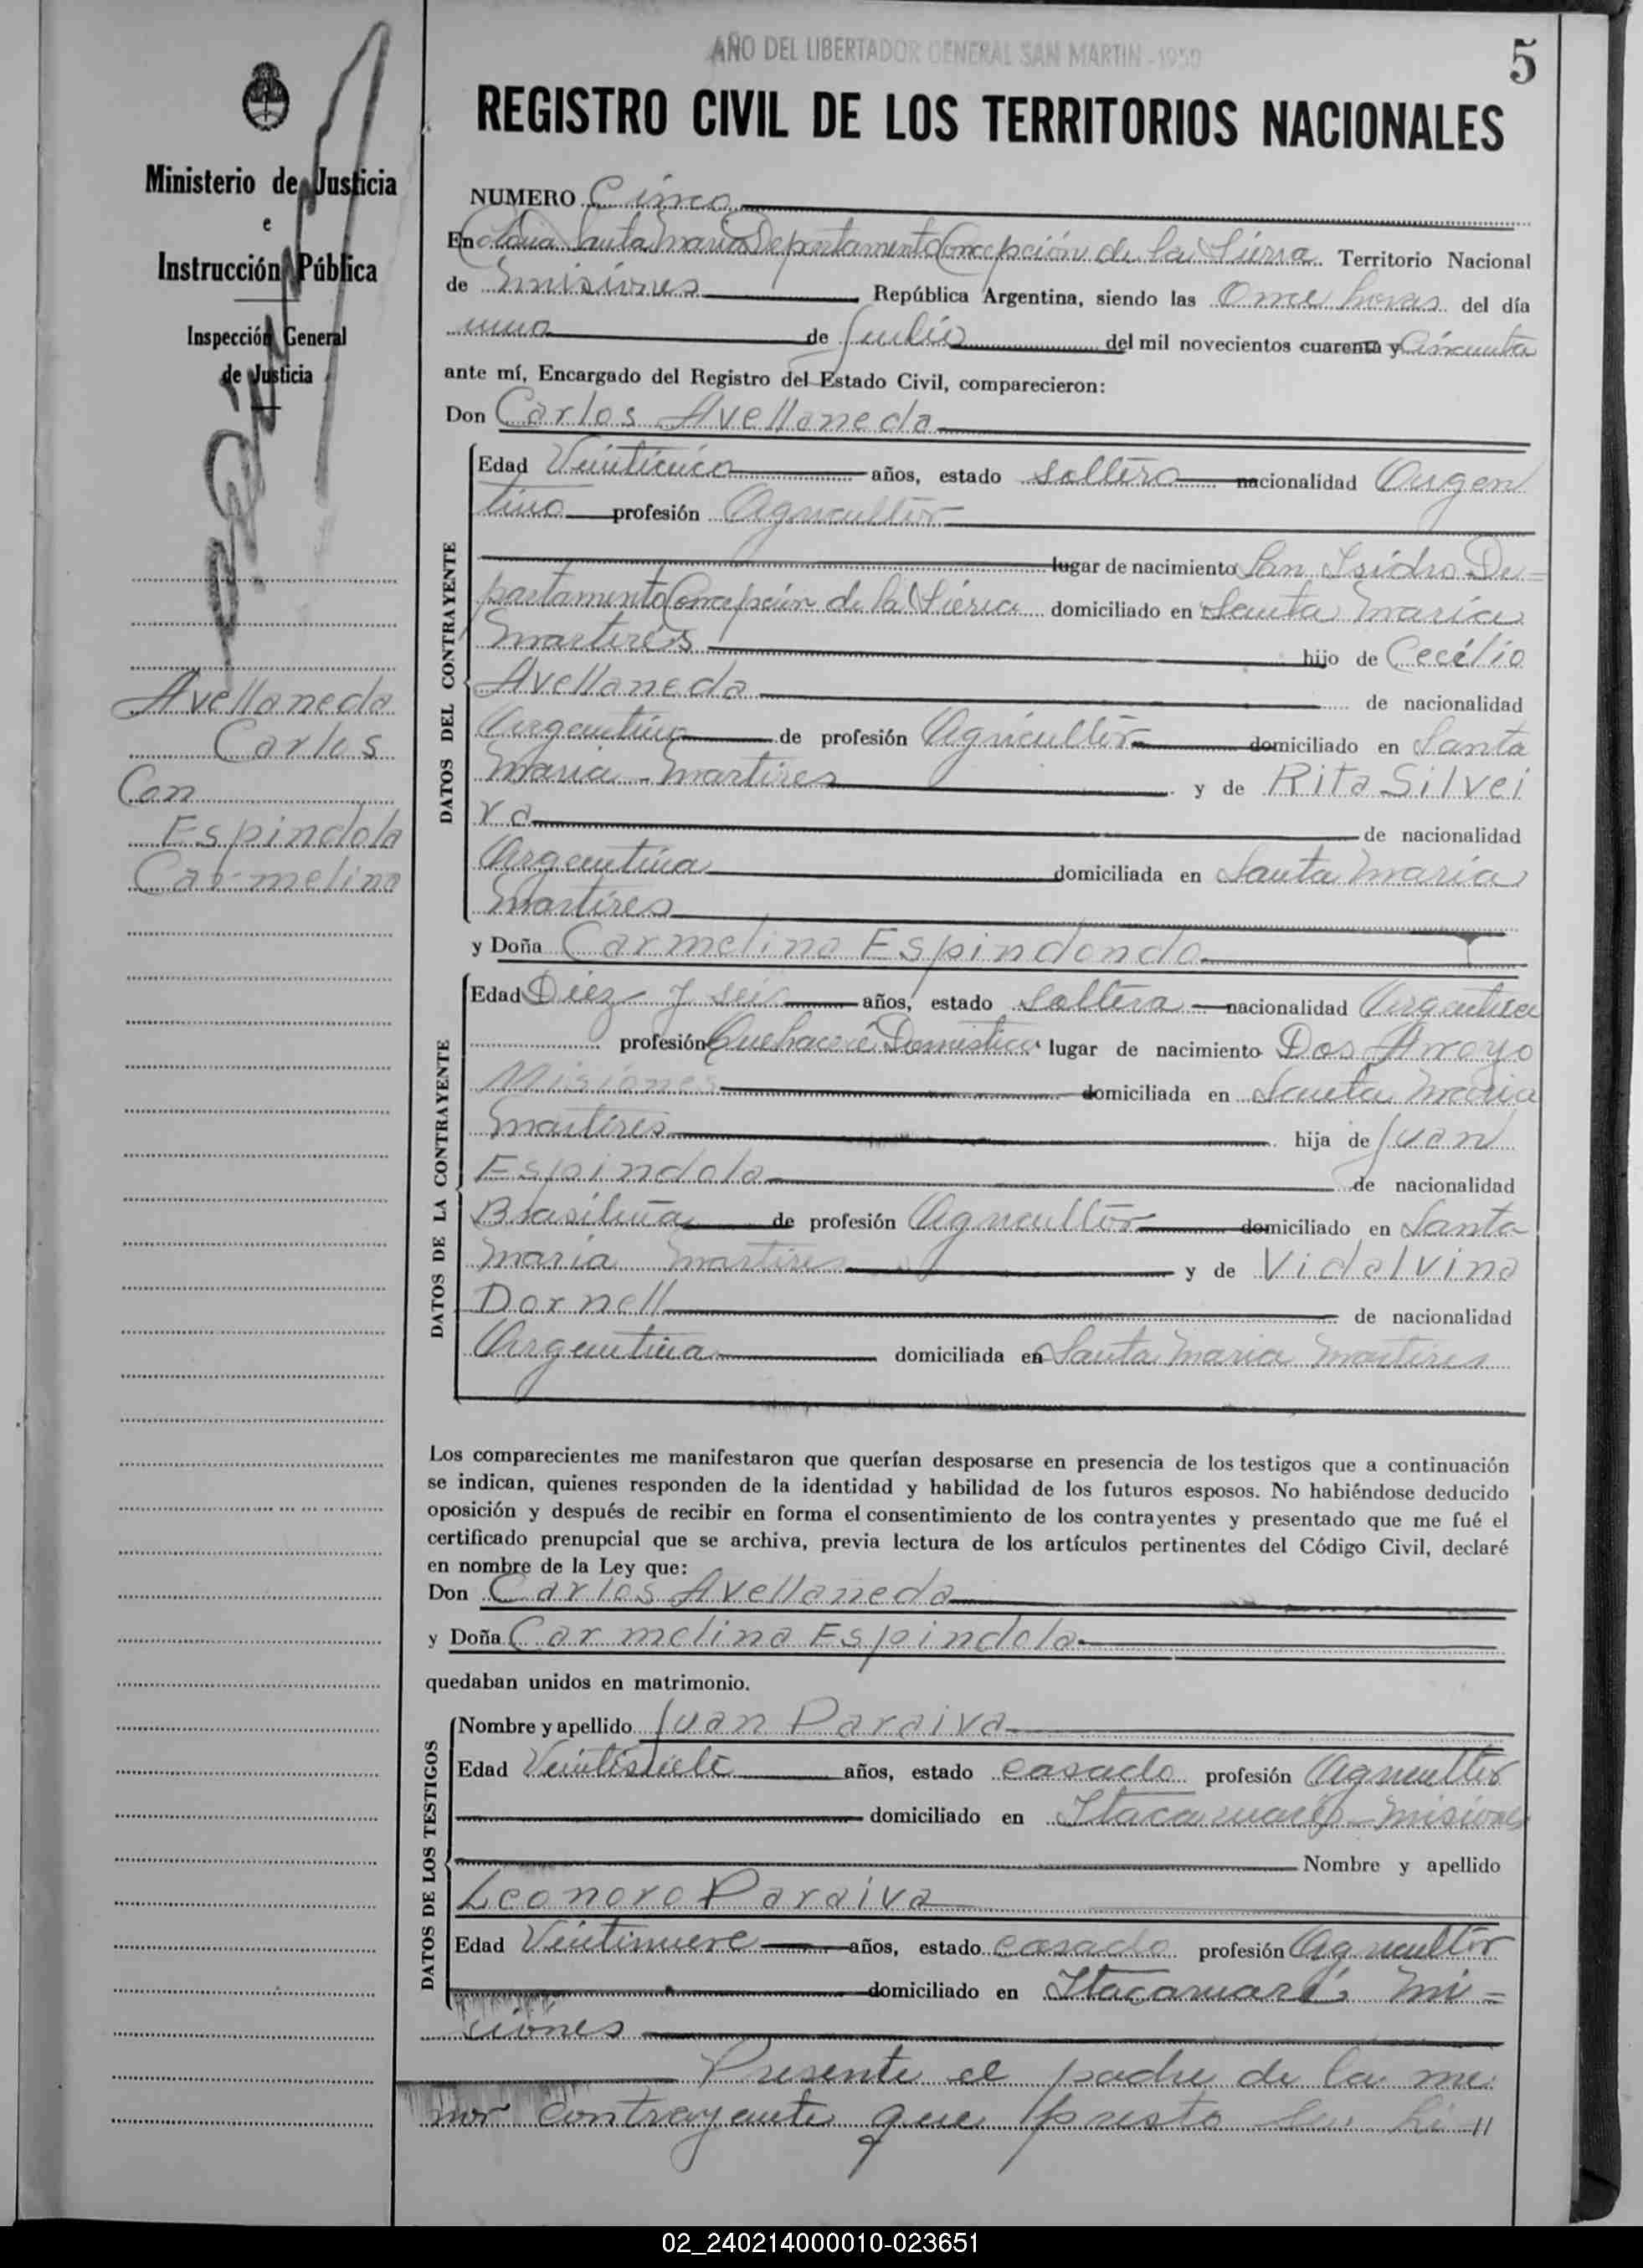 AÑO DEL LIBERTADOR GENERAL SAN MARTIN - 1950
5
REGISTRO CIVIL DE LOS TERRITORIOS NACIONALES
Ministerio de Justicia
e
Instrucción Pública
Inspección General
de Justicia
Avellaneda
Carlos
Con
Espindola
Carmelina
NUMERO Cinco
En Colonia Santa Maria Departamento Concepción de la Sierra Territorio Nacional
de Misiones República Argentina, siendo las Once horas del día
uno de Julio del mil novecientos cuarenta y Cincuenta
ante mí, Encargado del Registro del Estado Civil, comparecieron:
Don Carlos Avellaneda
DATOS DEL CONTRAYENTE
Edad años, estado soltero nacionalidad Argen
tino profesión Agricultor
lugar de nacimiento San Isidro De=
partamento Concepción de la Sierra domiciliado en Santa Maria
Martires hijo de Cecilio
Avellaneda de nacionalidad
Argentino de profesión Agricultor domiciliado en Santa
Maria - Martires y de Rita Silvei
ra de nacionalidad
Argentina domiciliada en Santa Maria
Martires
y Doña Carmelina Espindonda
DATOS DE LA CONTRAYENTE
Edad Diez y seis años, estado Soltera nacionalidad Argentina
profesión Quehacere Domestico lugar de nacimiento Dos Arroyo
Misiones domiciliada en Santa Maria
Martires hija de Juan
Espindola de nacionalidad
Brasileña de profesión Agricultor domiciliado en Santa
Maria Martires y de Vidalvina
Dornell de nacionalidad
Argentina domiciliada en Santa Maria Martires
Los comparecientes me manifestaron que querían desposarse en presencia de los testigos que a continuación
se indican, quienes responden de la identidad y habilidad de los futuros esposos. No habiéndose deducido
oposición y después de recibir en forma el consentimiento de los contrayentes y presentado que me fué el
certificado prenupcial que se archiva, previa lectura de los artículos pertinentes del Código Civil, declaré
en nombre de la Ley que:
Don Carlos Avellaneda
y Doña Carmelina Espindola
quedaban unidos en matrimonio.
DATOS DE LOS TESTIGOS
Nombre y apellido Juan Paraiva
Edad Veintisiete años, estado casado profesión Agricultor
domiciliado en Itacaruaré - Misiones
Nombre y apellido
Leonoro Paraiva
Edad Veintinueve años, estado casado profesión Agricultor
domiciliado en Itacaruaré Mi=
ciones
Presente el padre de la me
nor contrayente que presto su
02_240214000010-023651